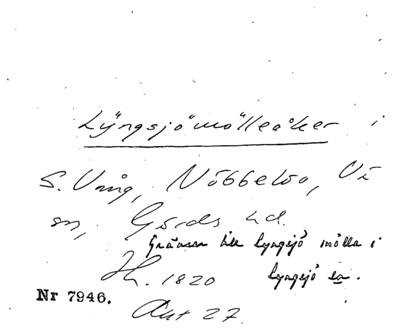 Lyngsjömölleåker i
S. Vång, Nöbbelöv, Vi
sn, Gärds hd.
Gränsar till Lyngsjö mölla i
H. 1820 Lyngsjö sn.
Nr 7946.
Akt 27